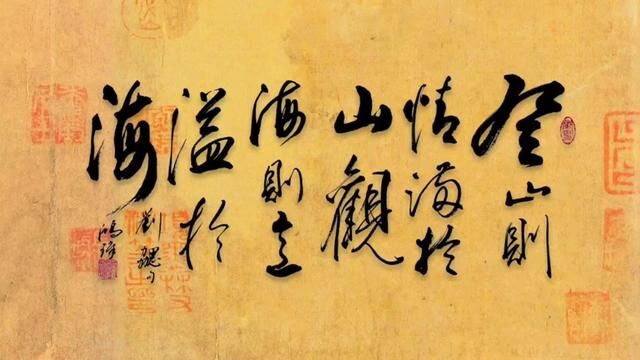 登山則
情滿於
山觀
海則意
溢於
海
劉勰句